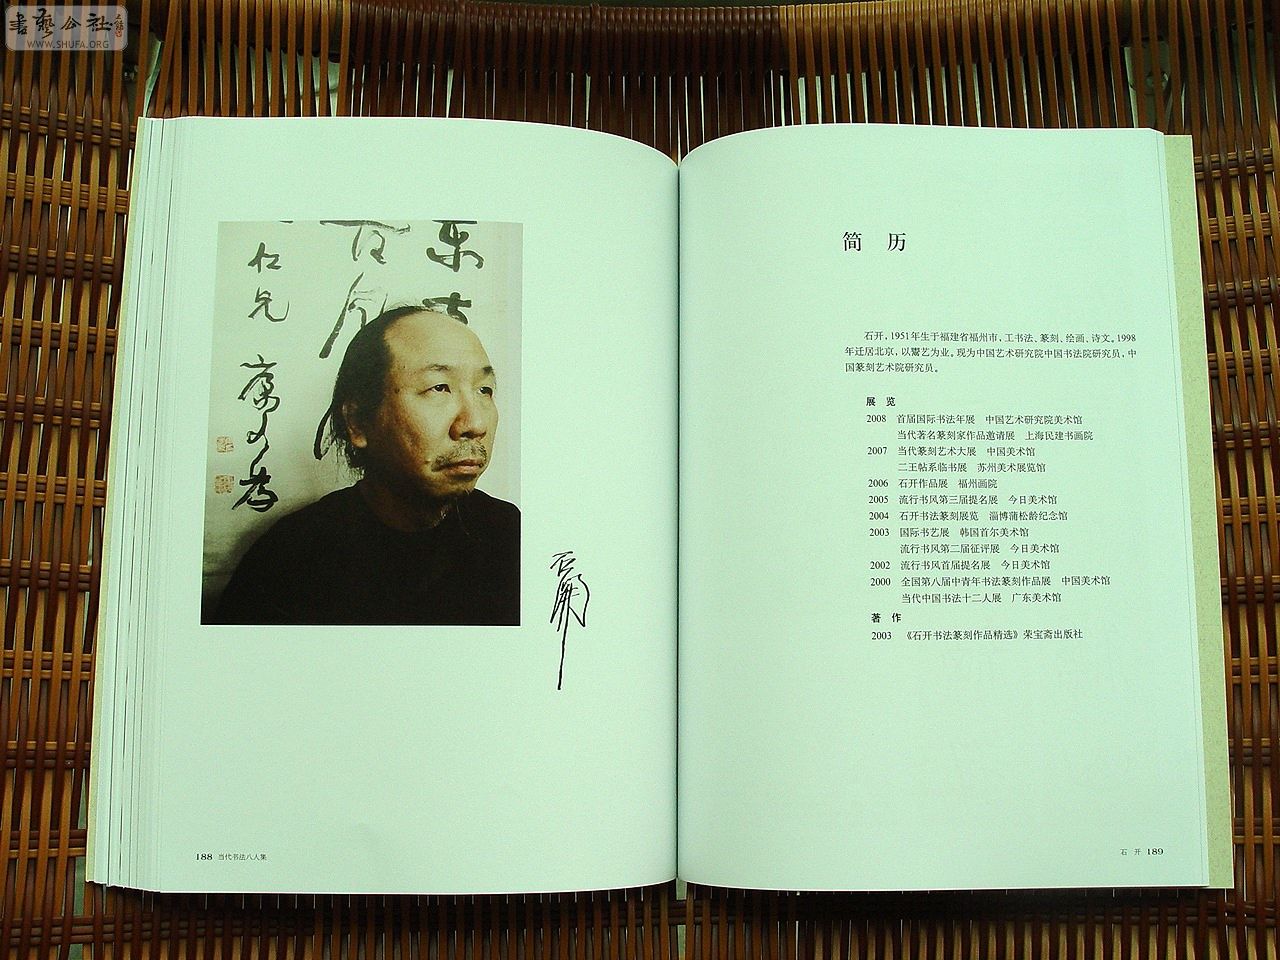 書藝公社
WWW.SHUFA.ORG
仁兄
石開
188 当代书法八人集
简 历
石开，1951年生于福建省福州市，工书法、篆刻、绘画、诗文。1998
年迁居北京，以鬻艺为业。现为中国艺术研究院中国书法院研究员，中
国篆刻艺术院研究员。
展 览
2008 首届国际书法年展 中国艺术研究院美术馆
当代著名篆刻家作品邀请展 上海民建书画院
2007 当代篆刻艺术大展 中国美术馆
二王帖系临书展 苏州美术展览馆
2006 石开作品展 福州画院
2005 流行书风第三届提名展 今日美术馆
2004 石开书法篆刻展览 淄博蒲松龄纪念馆
2003 国际书艺展 韩国首尔美术馆
流行书风第二届征评展 今日美术馆
2002 流行书风首届提名展 今日美术馆
2000 全国第八届中青年书法篆刻作品展 中国美术馆
当代中国书法十二人展 广东美术馆
著 作
2003 《石开书法篆刻作品精选》荣宝斋出版社
石 开 189